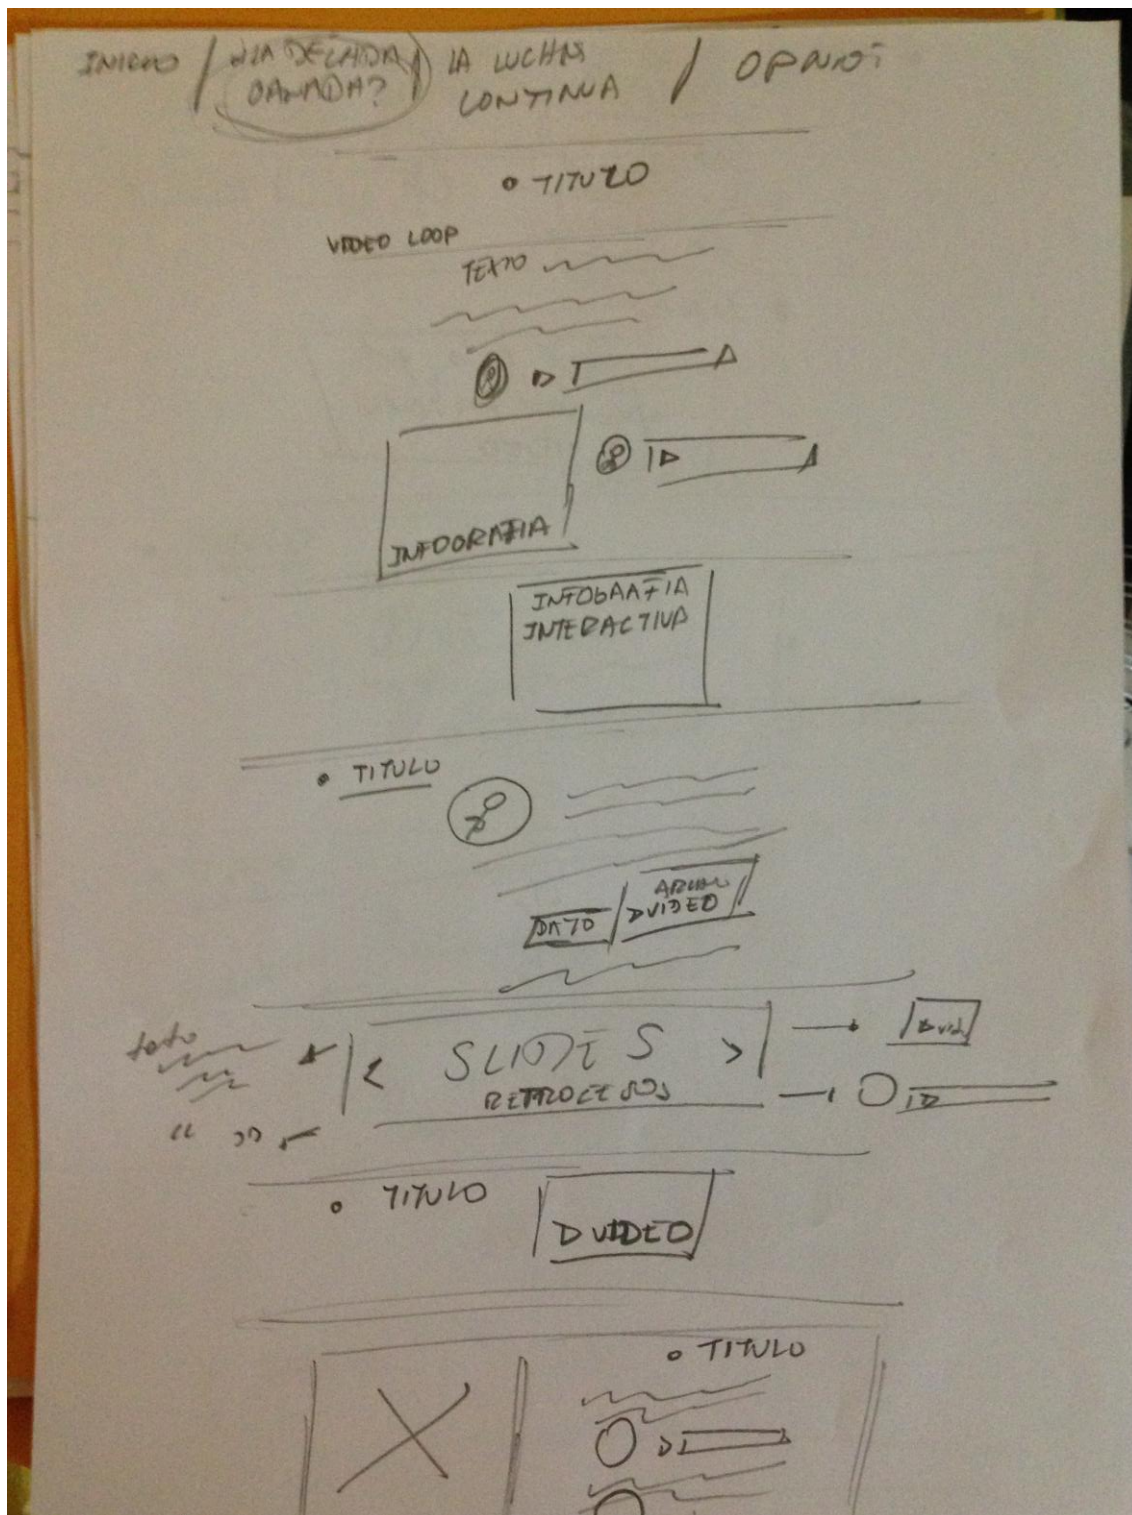 INICIO / ¿LA DECADA GANADA? / LA LUCHA CONTINUA / OPINIO
TITULO
VIDEO LOOP
TEXTO
INFOGRAFIA
INFOGRAFIA
INTERACTIVA
TITULO
DATO
VIDEO
SLIDES
RETROCESOS
foto
“ ”
TITULO
VIDEO
TITULO